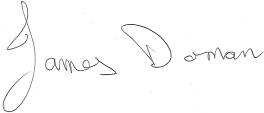 James Doman